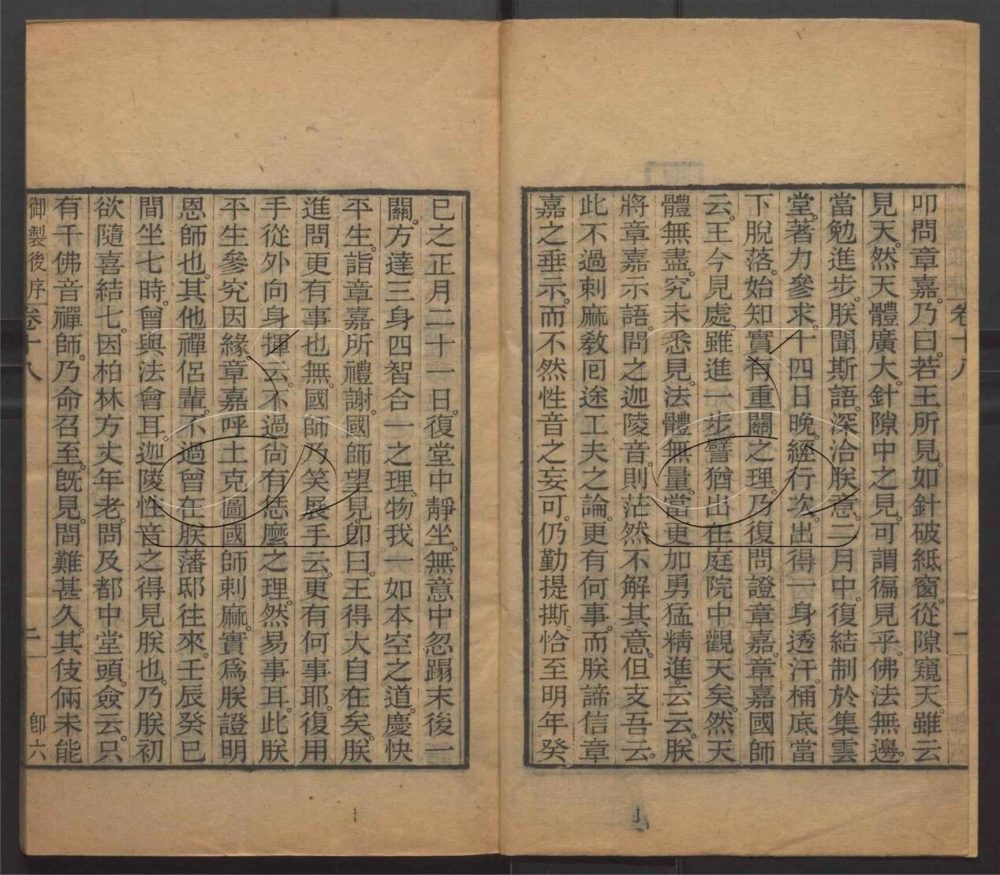 卷十八
一
叩問章嘉。乃曰。若王所見。如針破紙窗。從隙窺天。雖云
見天。然天體廣大。針隙中之見。可謂徧見乎。佛法無邊。
當勉進步。朕聞斯語。深洽朕意。二月中。復結制於集雲
堂。著力參求。十四日晚。經行次。出得一身透汗。桶底當
下脫落。始知實有重關之理。乃復問證章嘉。章嘉國師
云。王今見處。雖進一步。譬猶出在庭院中觀天矣。然天
體無盡。究未悉見。法體無量。當更加勇猛精進。云云。朕
將章嘉示語。問之迦陵音。則茫然不解其意。但支吾云。
此不過剌麻教囘途工夫之論。更有何事。而朕諦信章
嘉之垂示。而不然性音之妄可。仍勤提撕。恰至明年癸
巳之正月二十一日。復堂中靜坐。無意中忽蹋末後一
關。方達三身四智合一之理。物我一如本空之道。慶快
平生。詣章嘉所禮謝。國師望見。卽曰。王得大自在矣。朕
進問更有事也無。國師乃笑展手云。更有何事耶。復用
手從外向身揮云。不過尙有恁麼之理。然易事耳。此朕
平生參究因緣。章嘉呼土克圖國師剌麻。實爲朕證明
恩師也。其他禪侶輩。不過曾在朕藩邸往來。壬辰癸巳
間坐七時。曾與法會耳。迦陵性音之得見朕也。乃朕初
欲隨喜結七。因柏林方丈年老。問及都中堂頭。僉云。只
有千佛音禪師。乃命召至。旣見。問難甚久。其伎倆未能
御製後序
卷十八
二
郎六